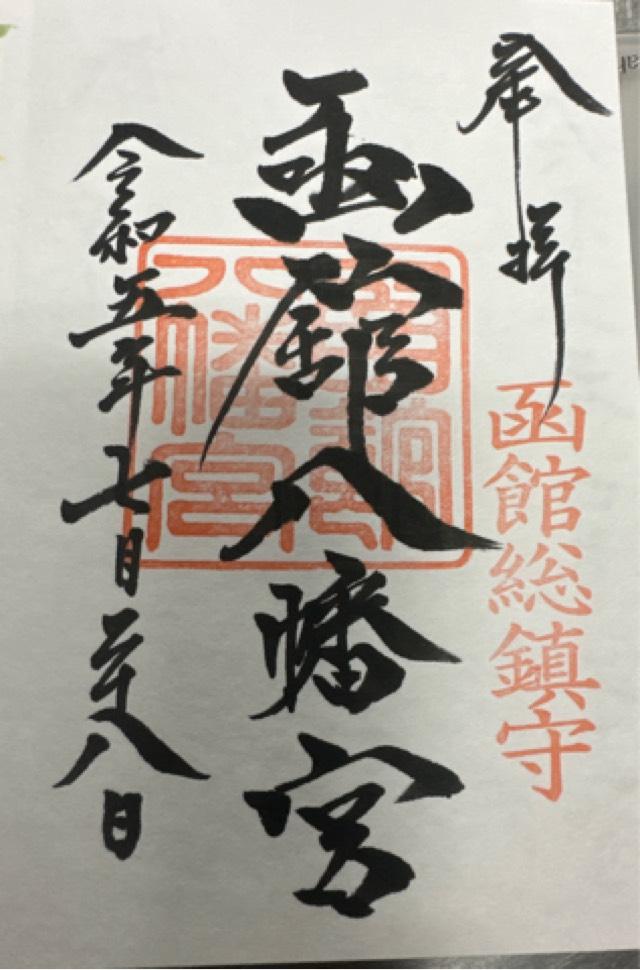 奉拝
函館総鎮守
函館八幡宮
函館八幡宮
令和五年七月二十八日